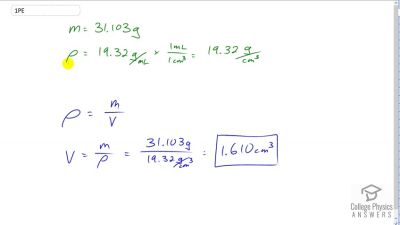 1PE
m = 31.103g
ρ = 19.32 g/mL × 1mL/1cm³ = 19.32 g/cm³
ρ = m/V
V = m/ρ = 31.103g / 19.32 g/cm³ = 1.610 cm³
College Physics
ANSWERS